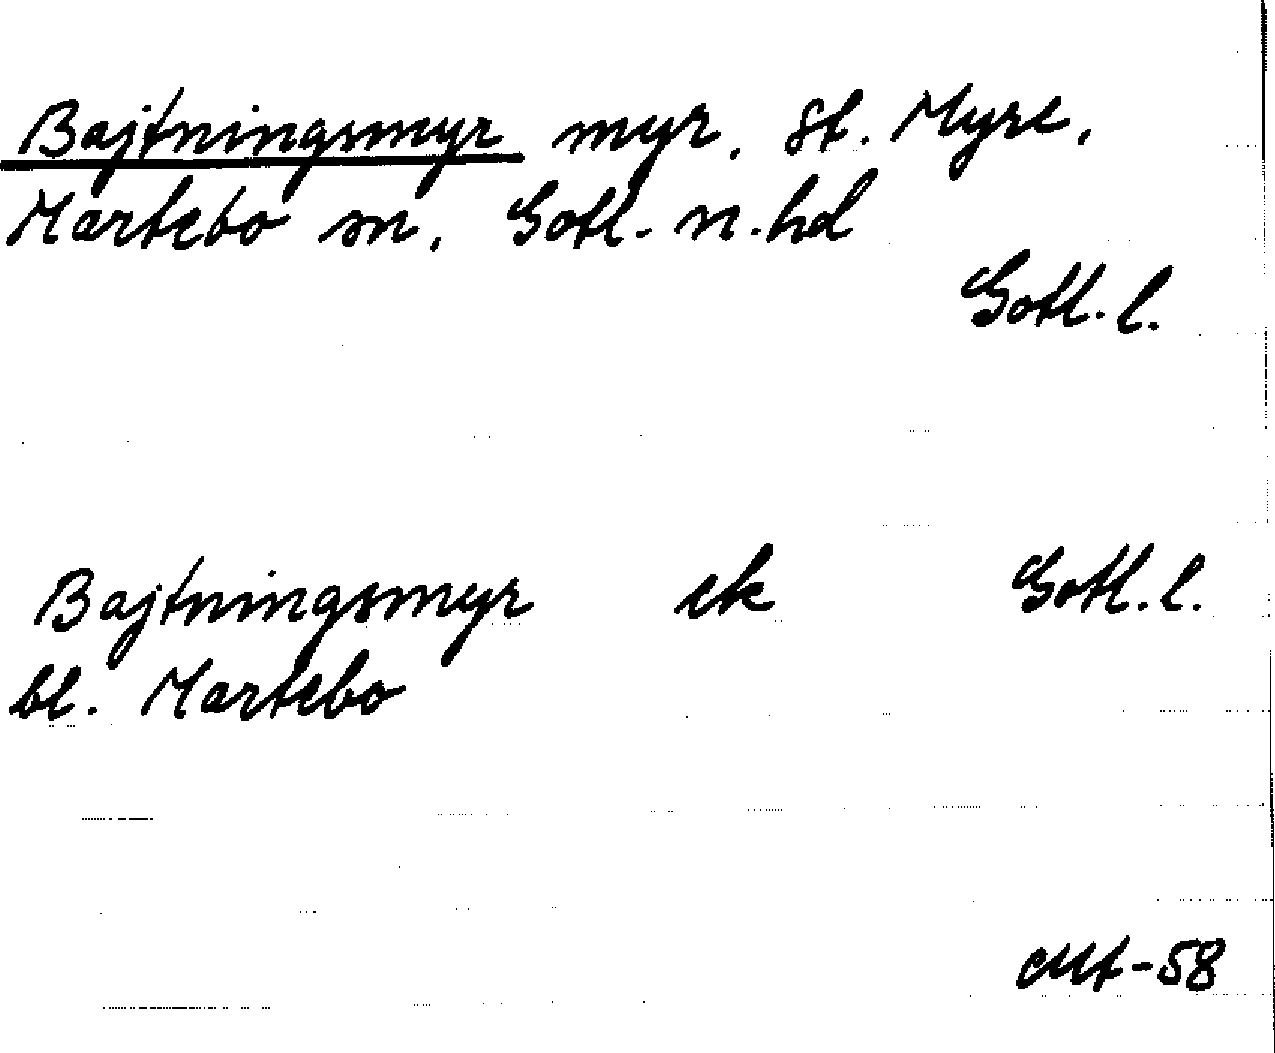 Bajtningsmyr myr, St. Myre,
Martebo sn, Gotl. n. hd
Gotl. l.
Bajtningsmyr ek Gotl. l.
bl. Martebo
-58